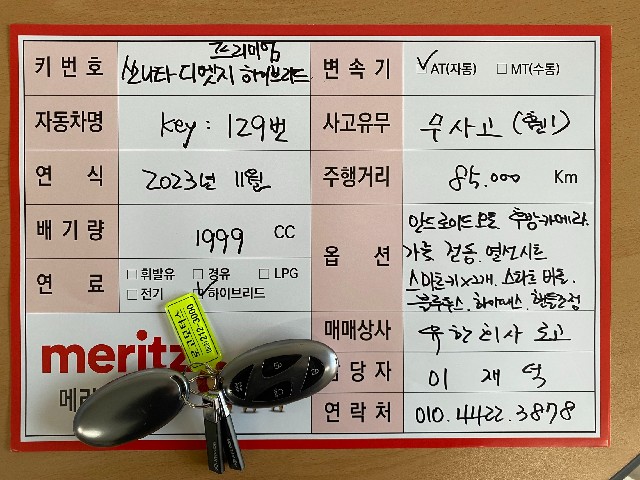 키 번호 프리미엄
쏘나타 디엣지 하이브리드
변속기 ✓AT(자동) □ MT(수동)
자동차명 key : 129번
사고유무 무사고 (휀1)
연 식 2023년 11월
주행거리 85.000 Km
배기량 1999 CC
옵 션 안드로이드오토 후방카메라
가죽 전동. 열선시트
스마트키x2개. 스마트 버튼.
블루투스. 하이패스. 핸들조정
연 료 □ 휘발유 □ 경유 □ LPG
□ 전기 ✓하이브리드
매매상사 유한회사 로고
당자 이 재 덕
연락처 010.4422.3878
meritz
메리
212-3000